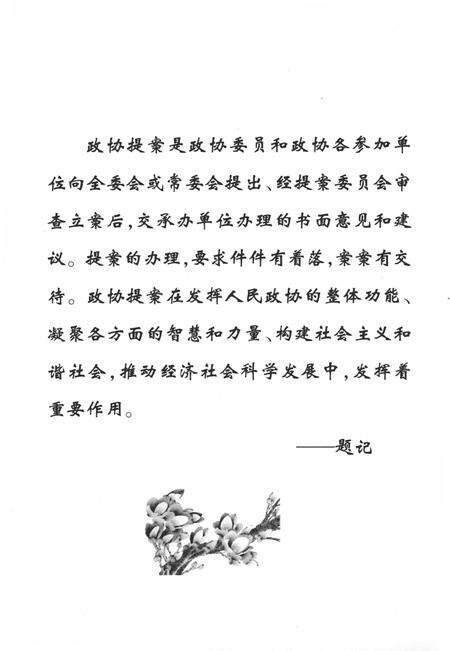 政协提案是政协委员和政协各参加单
位向全委会或常委会提出、经提案委员会审
查立案后，交承办单位办理的书面意见和建
议。提案的办理，要求件件有着落，案案有交
待。政协提案在发挥人民政协的整体功能、
凝聚各方面的智慧和力量、构建社会主义和
谐社会，推动经济社会科学发展中，发挥着
重要作用。
——题记